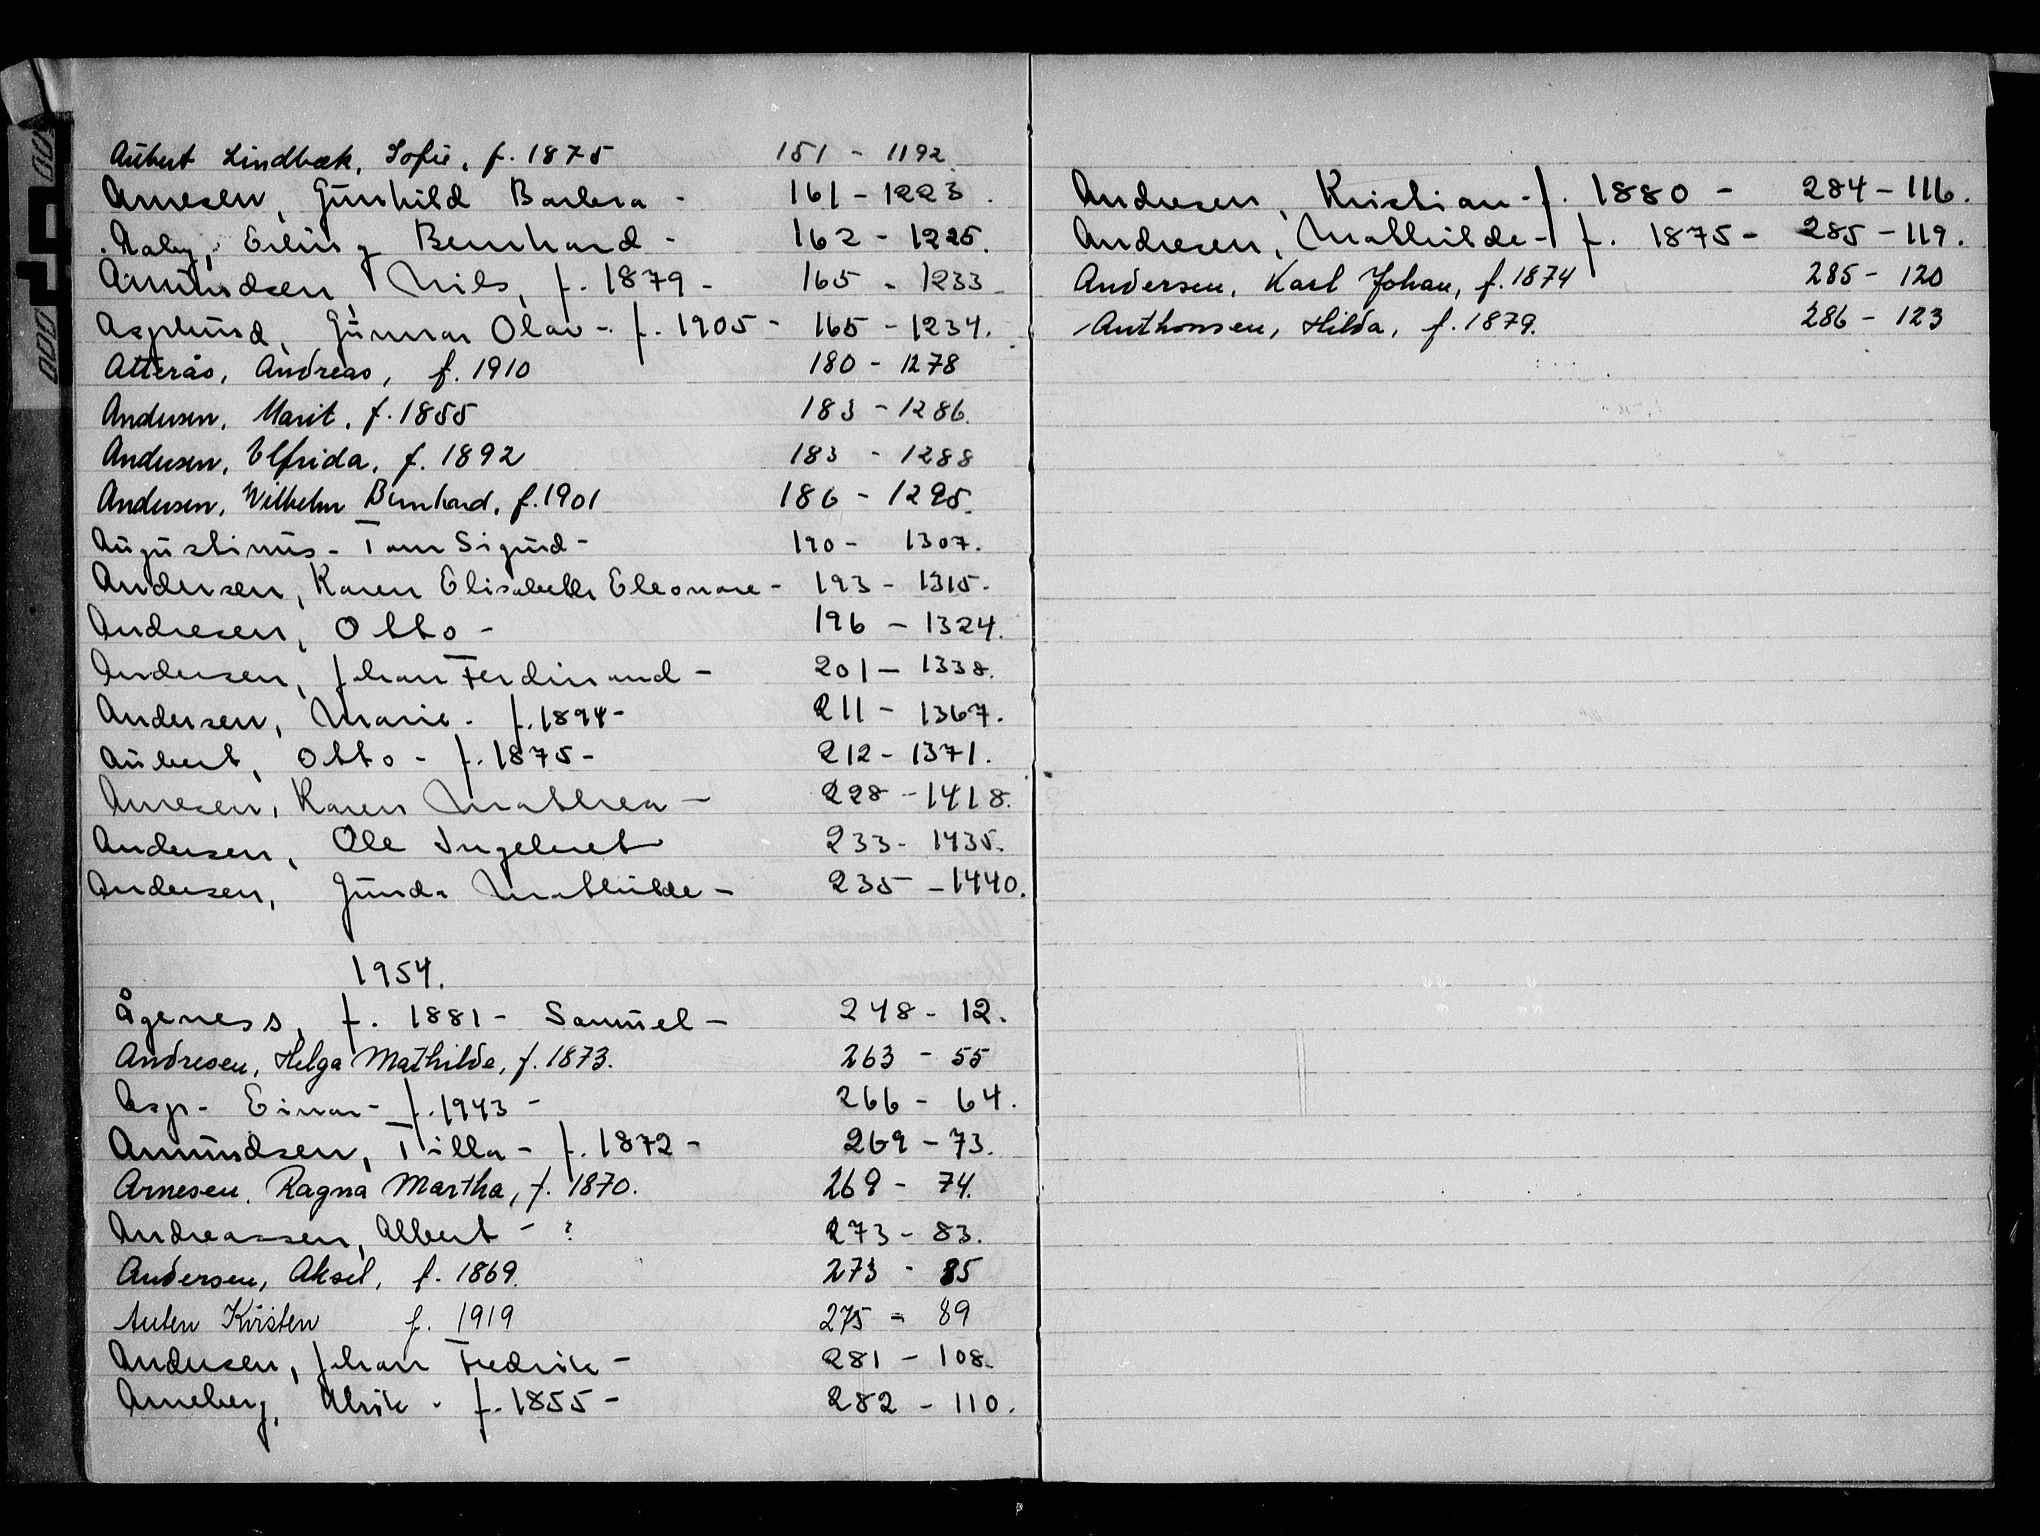 Aubert Lindbæk, Sofie, f. 1875 151 - 1192
Arnesen, Gunhild Barbra - 161 - 1223.
Raby, Erling Bernhard - 162 - 1225.
Amundsen, Nils, f. 1879 - 165 - 1233
Asplund, Gunnar Olav - f. 1905 - 165 - 1234.
Atterås, Andreas, f. 1910 180 - 1278
Andersen, Marit, f. 1855 183 - 1286.
Andersen, Elfrida, f. 1892 183 - 1288
Andersen, Wilhelm Bernhard, f. 1901 186 - 1295.
Augustinus - Tom Sigurd - 190 - 1307.
Andersen, Karen Elisabeth Eleonore - 193 - 1315.
Andresen, Otto - 196 - 1324.
Andersen, Johan Ferdinand - 201 - 1338.
Andersen, Marie - f. 1894 - 211 - 1367.
Aubert, Otto - f. 1875 - 212 - 1371.
Arnesen, Karen Mathea - 228 - 1418.
Andersen, Ole Ingebret 233 - 1435.
Andersen, Gunda Mathilde - 235 - 1440.
1954.
Ågeness, f. 1881 - Samuel - 248 - 12.
Andresen, Helga Mathilde, f. 1873. 263 - 55
Asp - Einar - f. 1943 - 266 - 64.
Amundsen, Tilla - f. 1872 - 269 - 73.
Arnesen, Ragna Martha, f. 1870. 269 - 74.
Andreassen, Albert - ? 273 - 83.
Andersen, Aksel, f. 1869. 273 - 85
Auten Kirsten f. 1919 275 - 89
Andersen, Johan Fredrik - 281 - 108.
Arneberg, Ulrik - f. 1855 - 282 - 110.
Andresen, Kristian - f. 1880 - 284 - 116.
Andresen, Mathilde - f. 1875 - 285 - 119.
Andersen, Karl Johan, f. 1874 285 - 120
Anthonsen, Hilda, f. 1879. 286 - 123